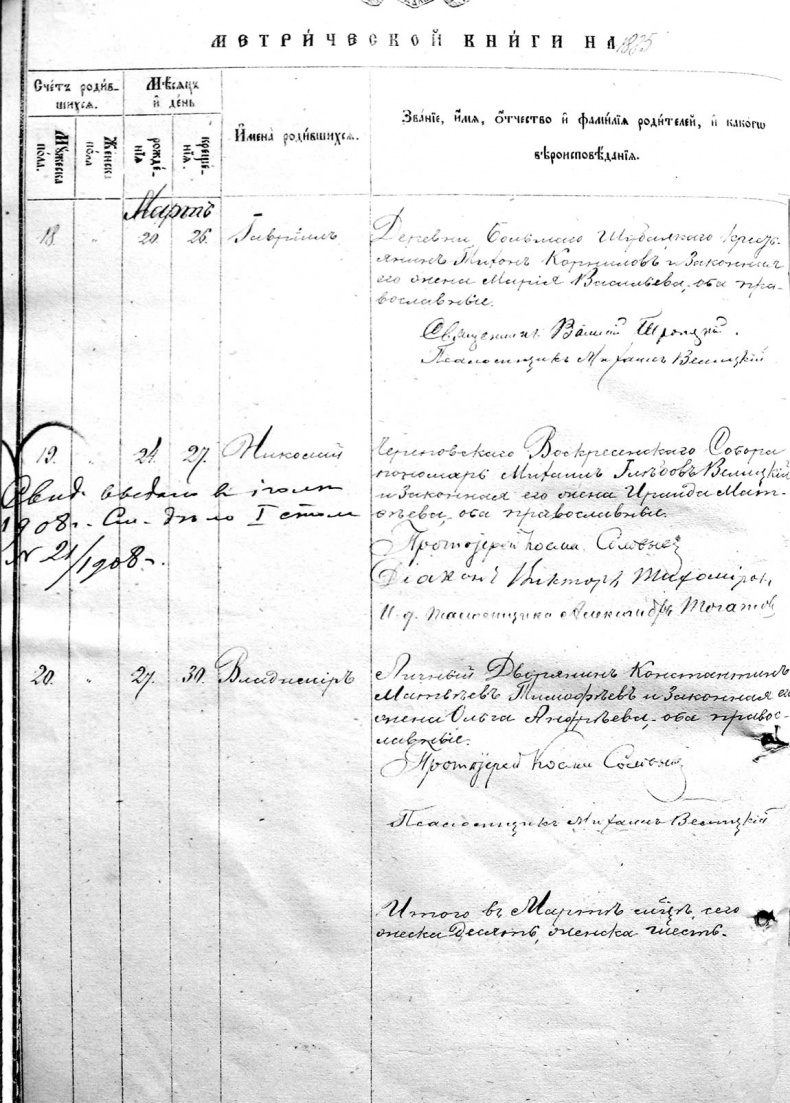 МЕТРИ́ЧЕСКОЙ КНИ́ГИ НА 1885
Сче́тъ роди́в-
шихся.
Му́жеска
по́ла.
Же́нска
по́ла
Мѣ́сяцъ
и де́нь
рожде́-
нїя
креще́-
нїя.
И҆мена̀ роди́вшихся.
Зва́нїе, и҆́мя, ѻ҆́тчество и҆ фами́лїя роди́телей, и҆ како́гѡ
вѣроисповѣ́данїя.
Мартъ
18. " 20. 26. Гавріилъ
Деревни Большаго кресть-
янинъ Тихонъ Корниловъ и законная
его жена Марія Васильева, оба пра-
вославные.
Священникъ
Псаломщикъ Михаилъ Велицкій
19. " 24. 27. Николай
Воскресенскаго Собора
пономарь Михаилъ Глѣбовъ Велицкій
и законная его жена Ираида Мат-
вѣева, оба православные.
Протоіерей Косма
Діаконъ Викторъ Тихоміровъ
И. д. псаломщика Александръ
Свид. выдано въ іюлѣ
1908 г. См. дѣло I стола
N 21/1908 г.
20. " 27. 30. Владиміръ
Личный Дворянинъ Константинъ
Матвѣевъ Тимофѣевъ и законная его
жена Ольга Андрѣева, оба правос-
лавные.
Протоіерей Косма
Псаломщикъ Михаилъ Велицкій
Итого въ Мартѣ м-цѣ сего
жеска десять, женска шесть.